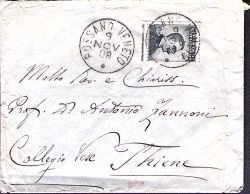 POSSAGNO VENETO
9
NOV
08
Molto Rev. e Chiariss.
Prof. D. Antonio Zannoni
Collegio Vesc.
Thiene